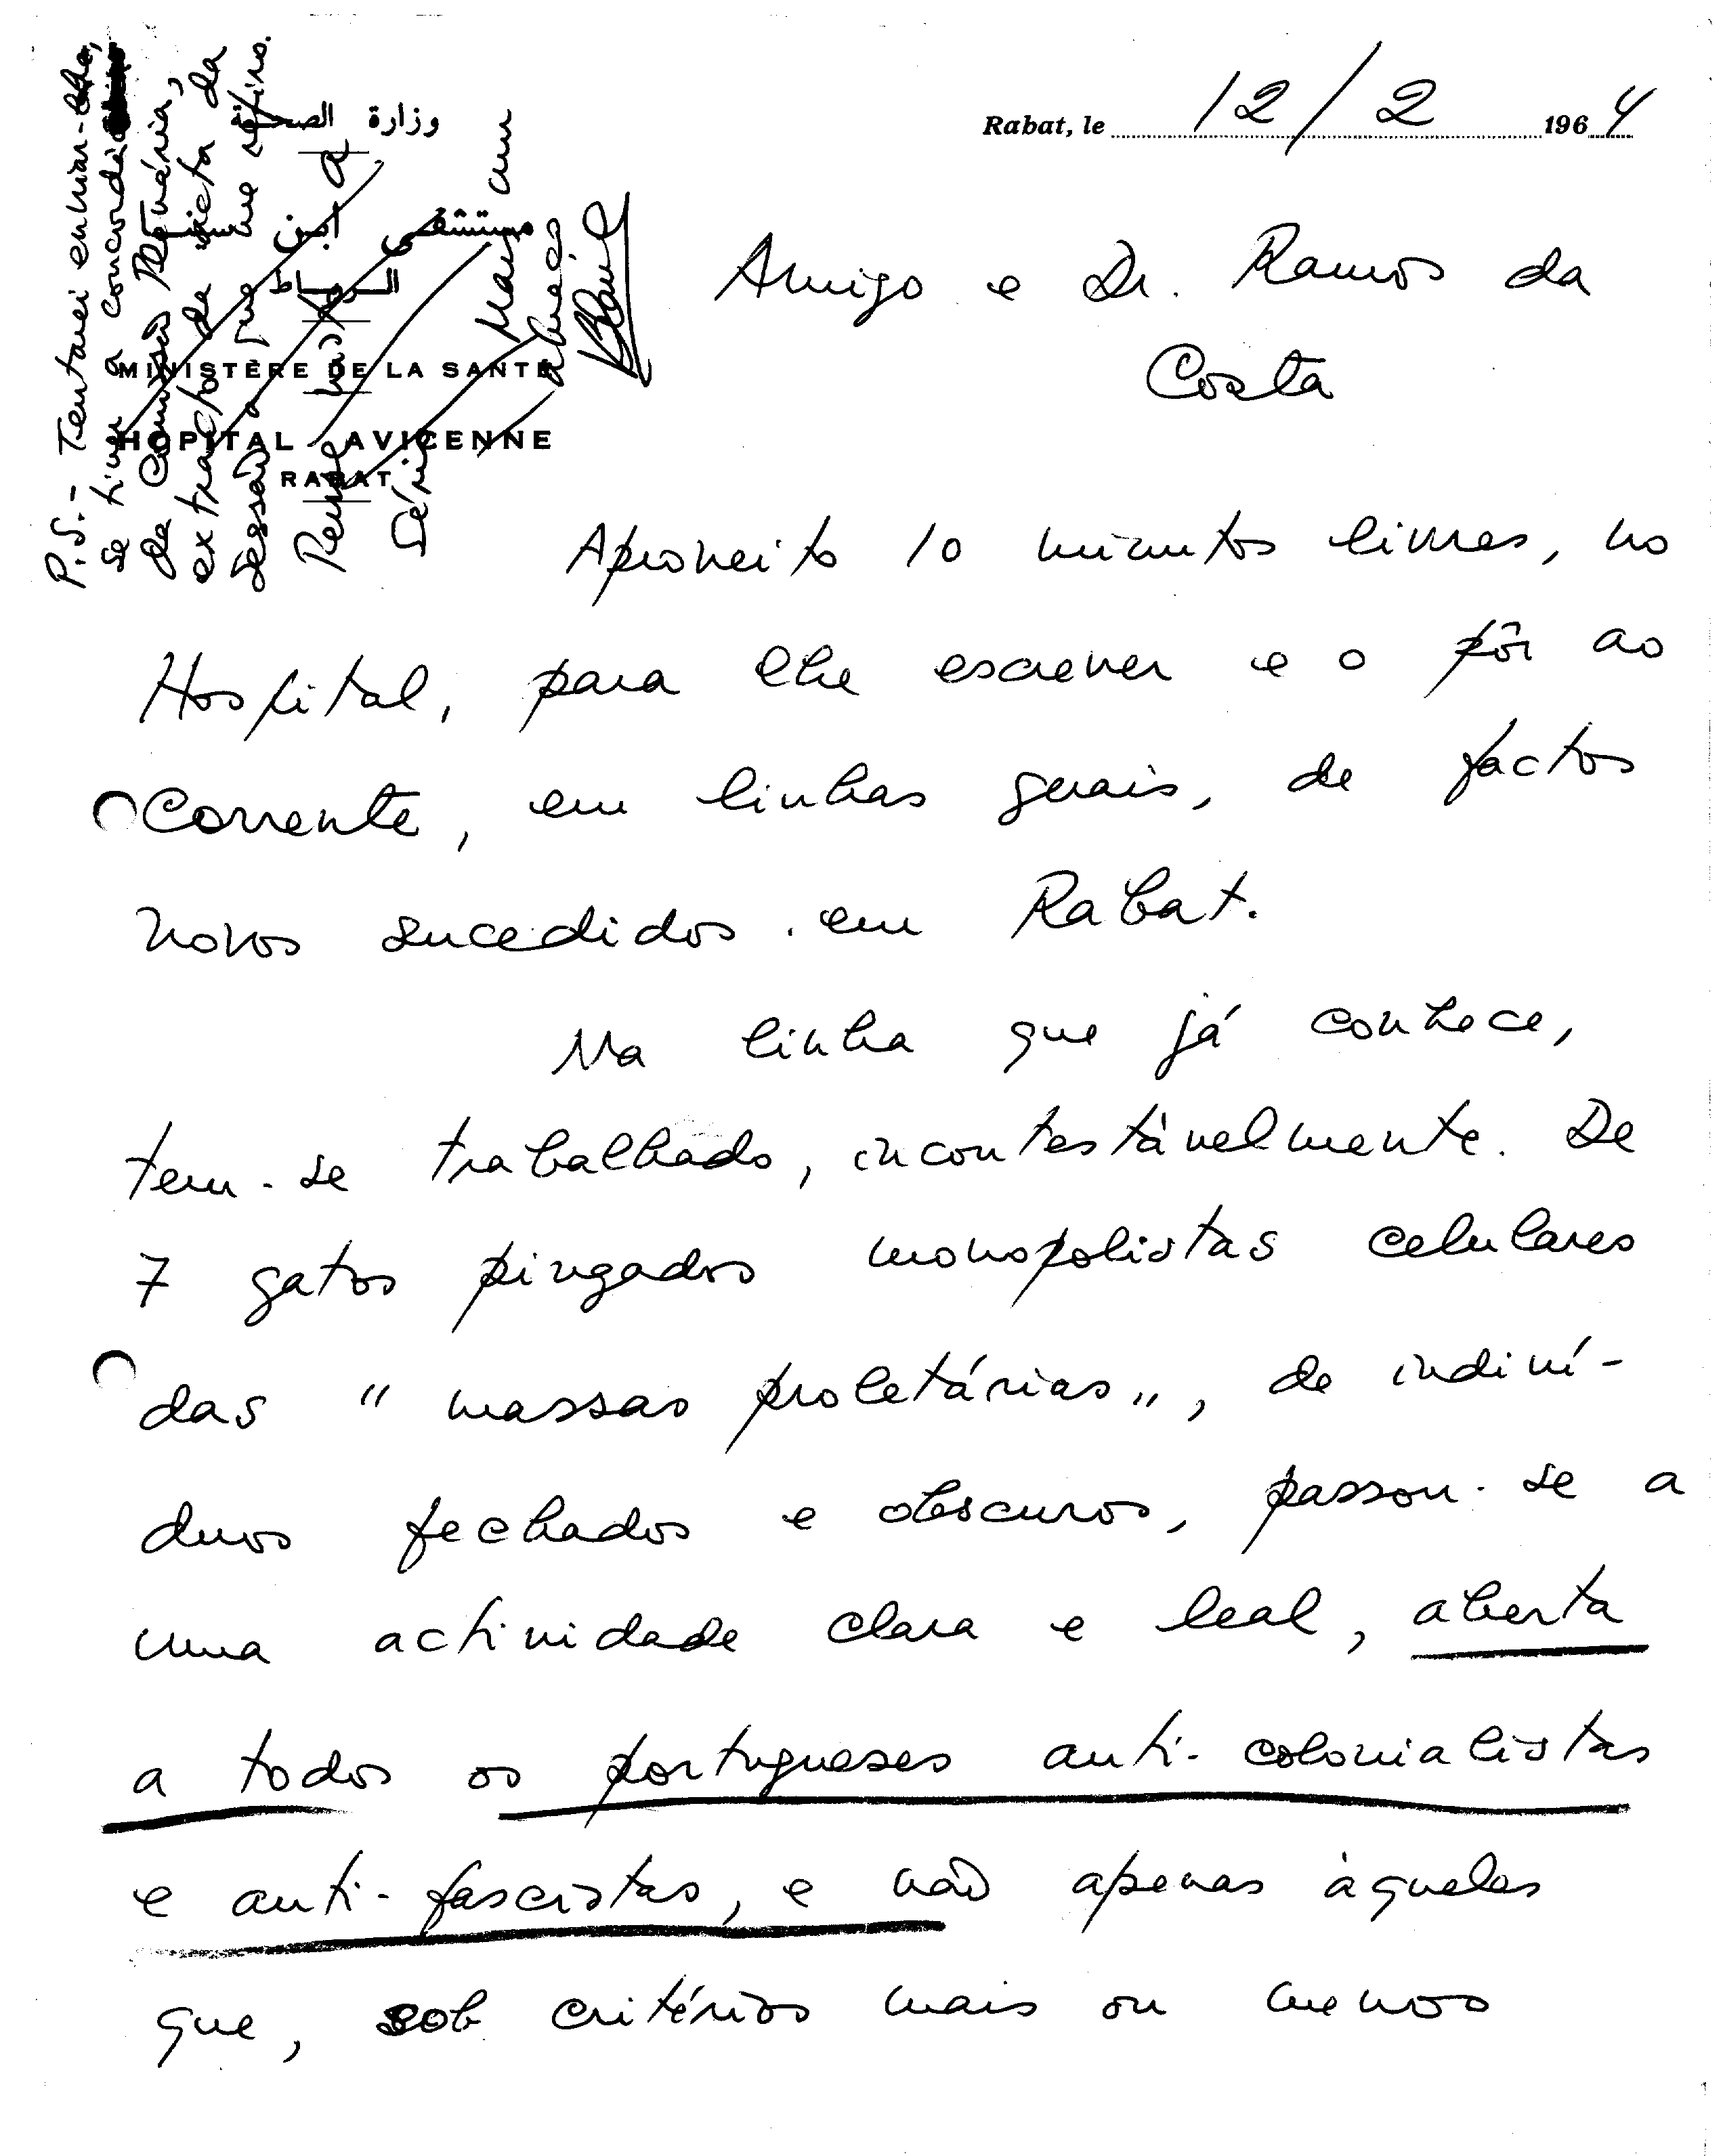 Rabat, le 12/2 1964
وزارة الصحة
مستشفى ابن سينا
الرباط
MINISTÈRE DE LA SANTÉ
HOPITAL AVICENNE
RABAT
P.S. - Tentarei enviar-lhe,
se tiver a concordância
da Comissão Plenária,
extracto da acta da
sessão a que me refiro.
Mais um
abraço
Amigo e Dr. Ramos da
Costa
Aproveito 10 minutos livres, no
Hospital, para lhe escrever e o pôr ao
Corrente, em linhas gerais, de factos
novos sucedidos em Rabat.
Na linha que já conhece,
tem-se trabalhado, incontestávelmente. De
7 gatos pingados monopolistas celulares
das "massas proletárias", de indiví-
duos fechados e obscuros, passou-se a
uma actividade clara e leal, aberta
a todos os portugueses anti-colonialistas
e anti-fascistas, e não apenas àqueles
que, sob critérios mais ou menos